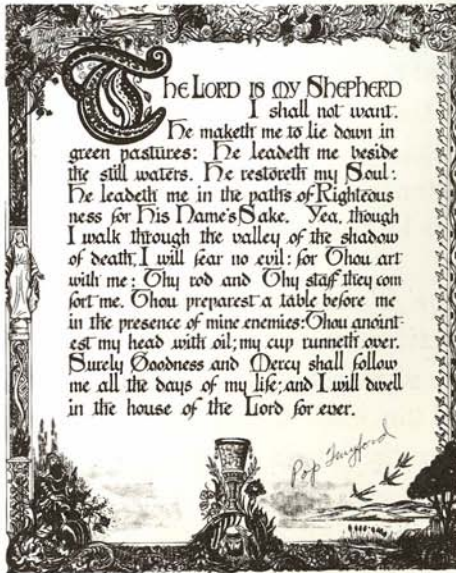 The Lord is my Shepherd
I shall not want.
He maketh me to lie down in
green pastures: He leadeth me beside
the still waters. He restoreth my Soul:
He leadeth me in the paths of Righteous
ness for His Name's Sake. Yea, though
I walk through the valley of the shadow
of death, I will fear no evil: for Thou art
with me: Thy rod and Thy staff they com
fort me. Thou preparest a table before me
in the presence of mine enemies: Thou anoint-
est my head with oil; my cup runneth over.
Surely Goodness and Mercy shall follow
me all the days of my life; and I will dwell
in the house of the Lord for ever.
Pop